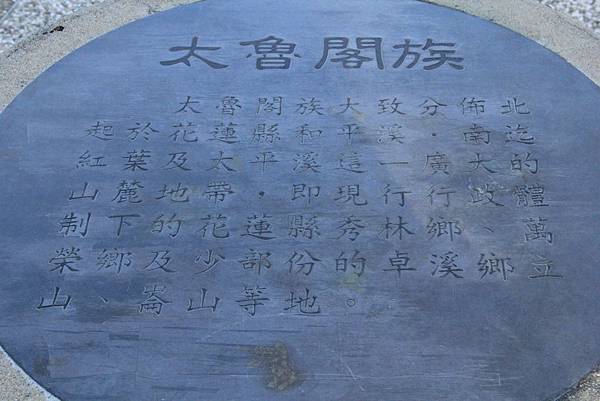 太魯閣族
太魯閣族大致分佈北
起於花蓮縣和平溪．南迄
紅葉及太平溪這一廣大的
山麓地帶．即現行行政體
制下的花蓮縣秀林鄉、萬
榮鄉及少部份的卓溪鄉立
山、崙山等地。